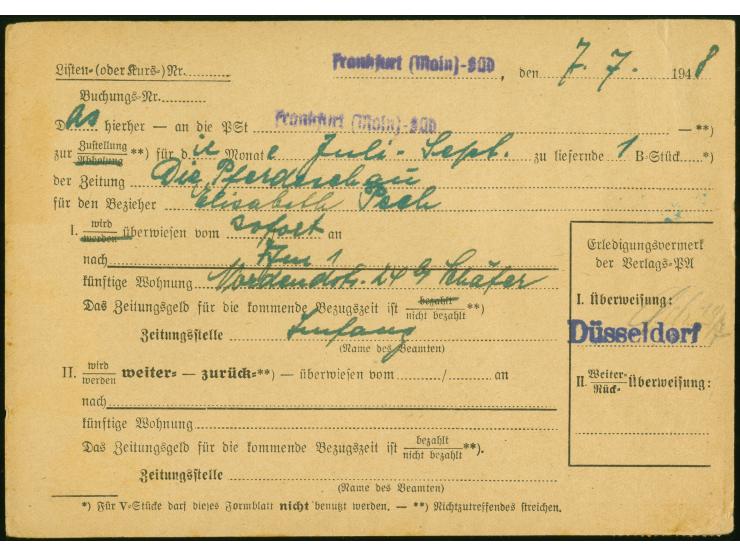 Listen-(oder Kurs-)Nr. Frankfurt (Main)-SÜD, den 7. 7. 1948
Buchungs-Nr.
Das hierher — an die PSt Frankfurt (Main)-SÜD — **)
zur Zustellung Abholung **) für die Monate Juli - Sept. zu liefernde 1 B-Stück *)
der Zeitung Die Pferdeschau
für den Bezieher Elisabeth Pech
I. wird werden überwiesen vom sofort an
nach Ffm 1
künftige Wohnung Nordendstr. 24 Schäfer
Das Zeitungsgeld für die kommende Bezugszeit ist bezahlt nicht bezahlt **)
Zeitungsstelle
(Name des Beamten)
II. wird werden weiter- — zurück-**) — überwiesen vom / an
nach
künftige Wohnung
Das Zeitungsgeld für die kommende Bezugszeit ist bezahlt nicht bezahlt **).
Zeitungsstelle
(Name des Beamten)
*) Für V-Stücke darf dieses Formblatt nicht benutzt werden. — **) Nichtzutreffendes streichen.
Erledigungsvermerk
der Verlags-PA
I. Überweisung:
Düsseldorf
II. Weiter- Rück- Überweisung: